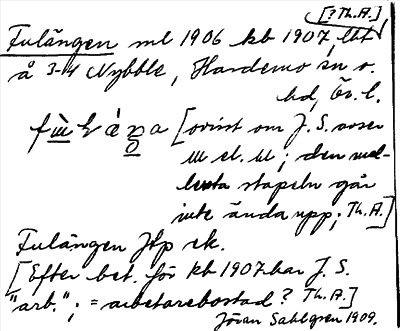 [? Th. A.]
Fulängen ml 1906 kb 1907,
å 3-14 Nybble, Hardemo sn o.
hd, Ör. l.
[ovisst om J. S. avser
el. ; den mel-
lersta stapeln går
inte ända upp; Th. A.]
Fulängen Jbp ek.
[Efter bet. för kb 1907 har J. S.
"arb."; = arbetarebostad? Th. A.]
Jöran Sahlgren 1909.